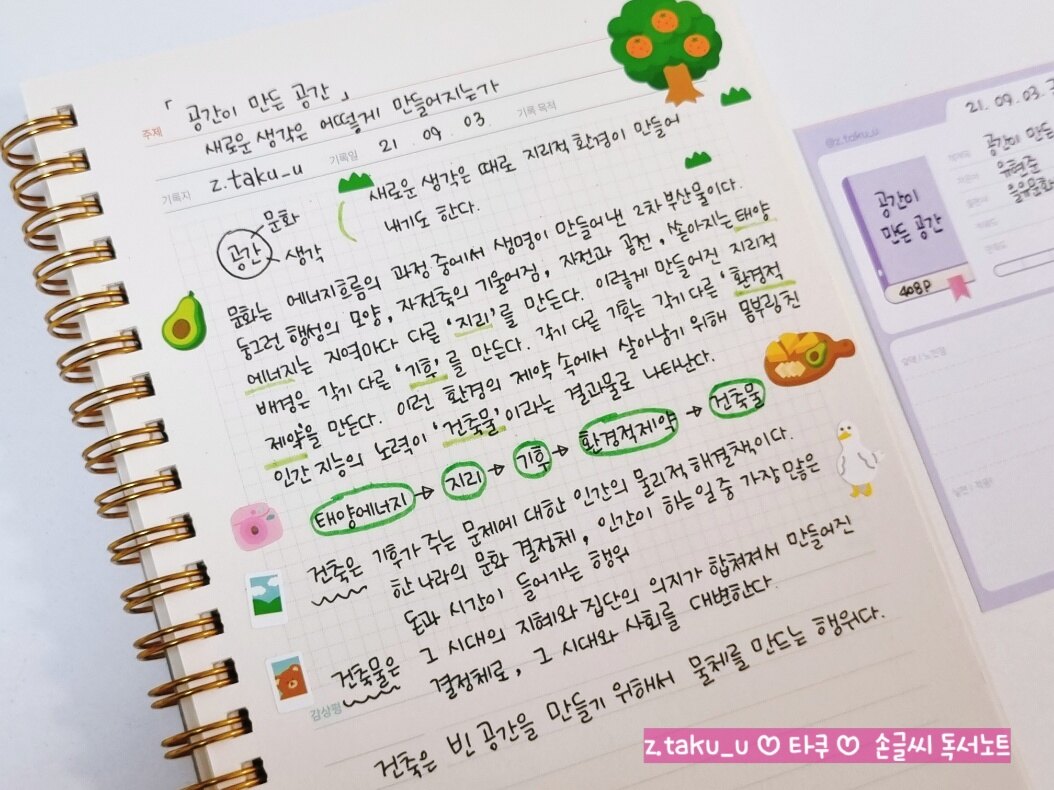 「공간이 만든 공간」
주제
새로운 생각은 어떻게 만들어지는가
기록자
z.taku_u
기록일
21 . 09 . 03
기록 목적
공간
문화
생각
새로운 생각은 때로 지리적 환경이 만들어
내기도 한다.
문화는 에너지흐름의 과정 중에서 생명이 만들어낸 2차 부산물이다.
둥그런 행성의 모양, 자전축의 기울어짐, 자전과 공전, 쏟아지는 태양
에너지는 지역마다 다른 '지리'를 만든다. 이렇게 만들어진 지리적
배경은 각기 다른 '기후'를 만든다. 각기 다른 기후는 각기 다른 '환경적
제약'을 만든다. 이런 환경의 제약 속에서 살아남기 위해 몸부림친
인간 지능의 노력이 '건축물'이라는 결과물로 나타난다.
태양에너지 → 지리 → 기후 → 환경적제약 → 건축물
건축은 기후가 주는 문제에 대한 인간의 물리적 해결책이다.
한 나라의 문화 결정체, 인간이 하는 일 중 가장 많은
돈과 시간이 들어가는 행위
건축물은 그 시대의 지혜와 집단의 의지가 합쳐져서 만들어진
결정체로, 그 시대와 사회를 대변한다.
감상평
건축은 빈 공간을 만들기 위해서 물체를 만드는 행위다.
@z.taku_u
21. 09. 03
공간이 만든
유현준
을유문화
공간이
만든 공간
408P
z.taku_u ♡ 타쿠 ♡ 손글씨 독서노트